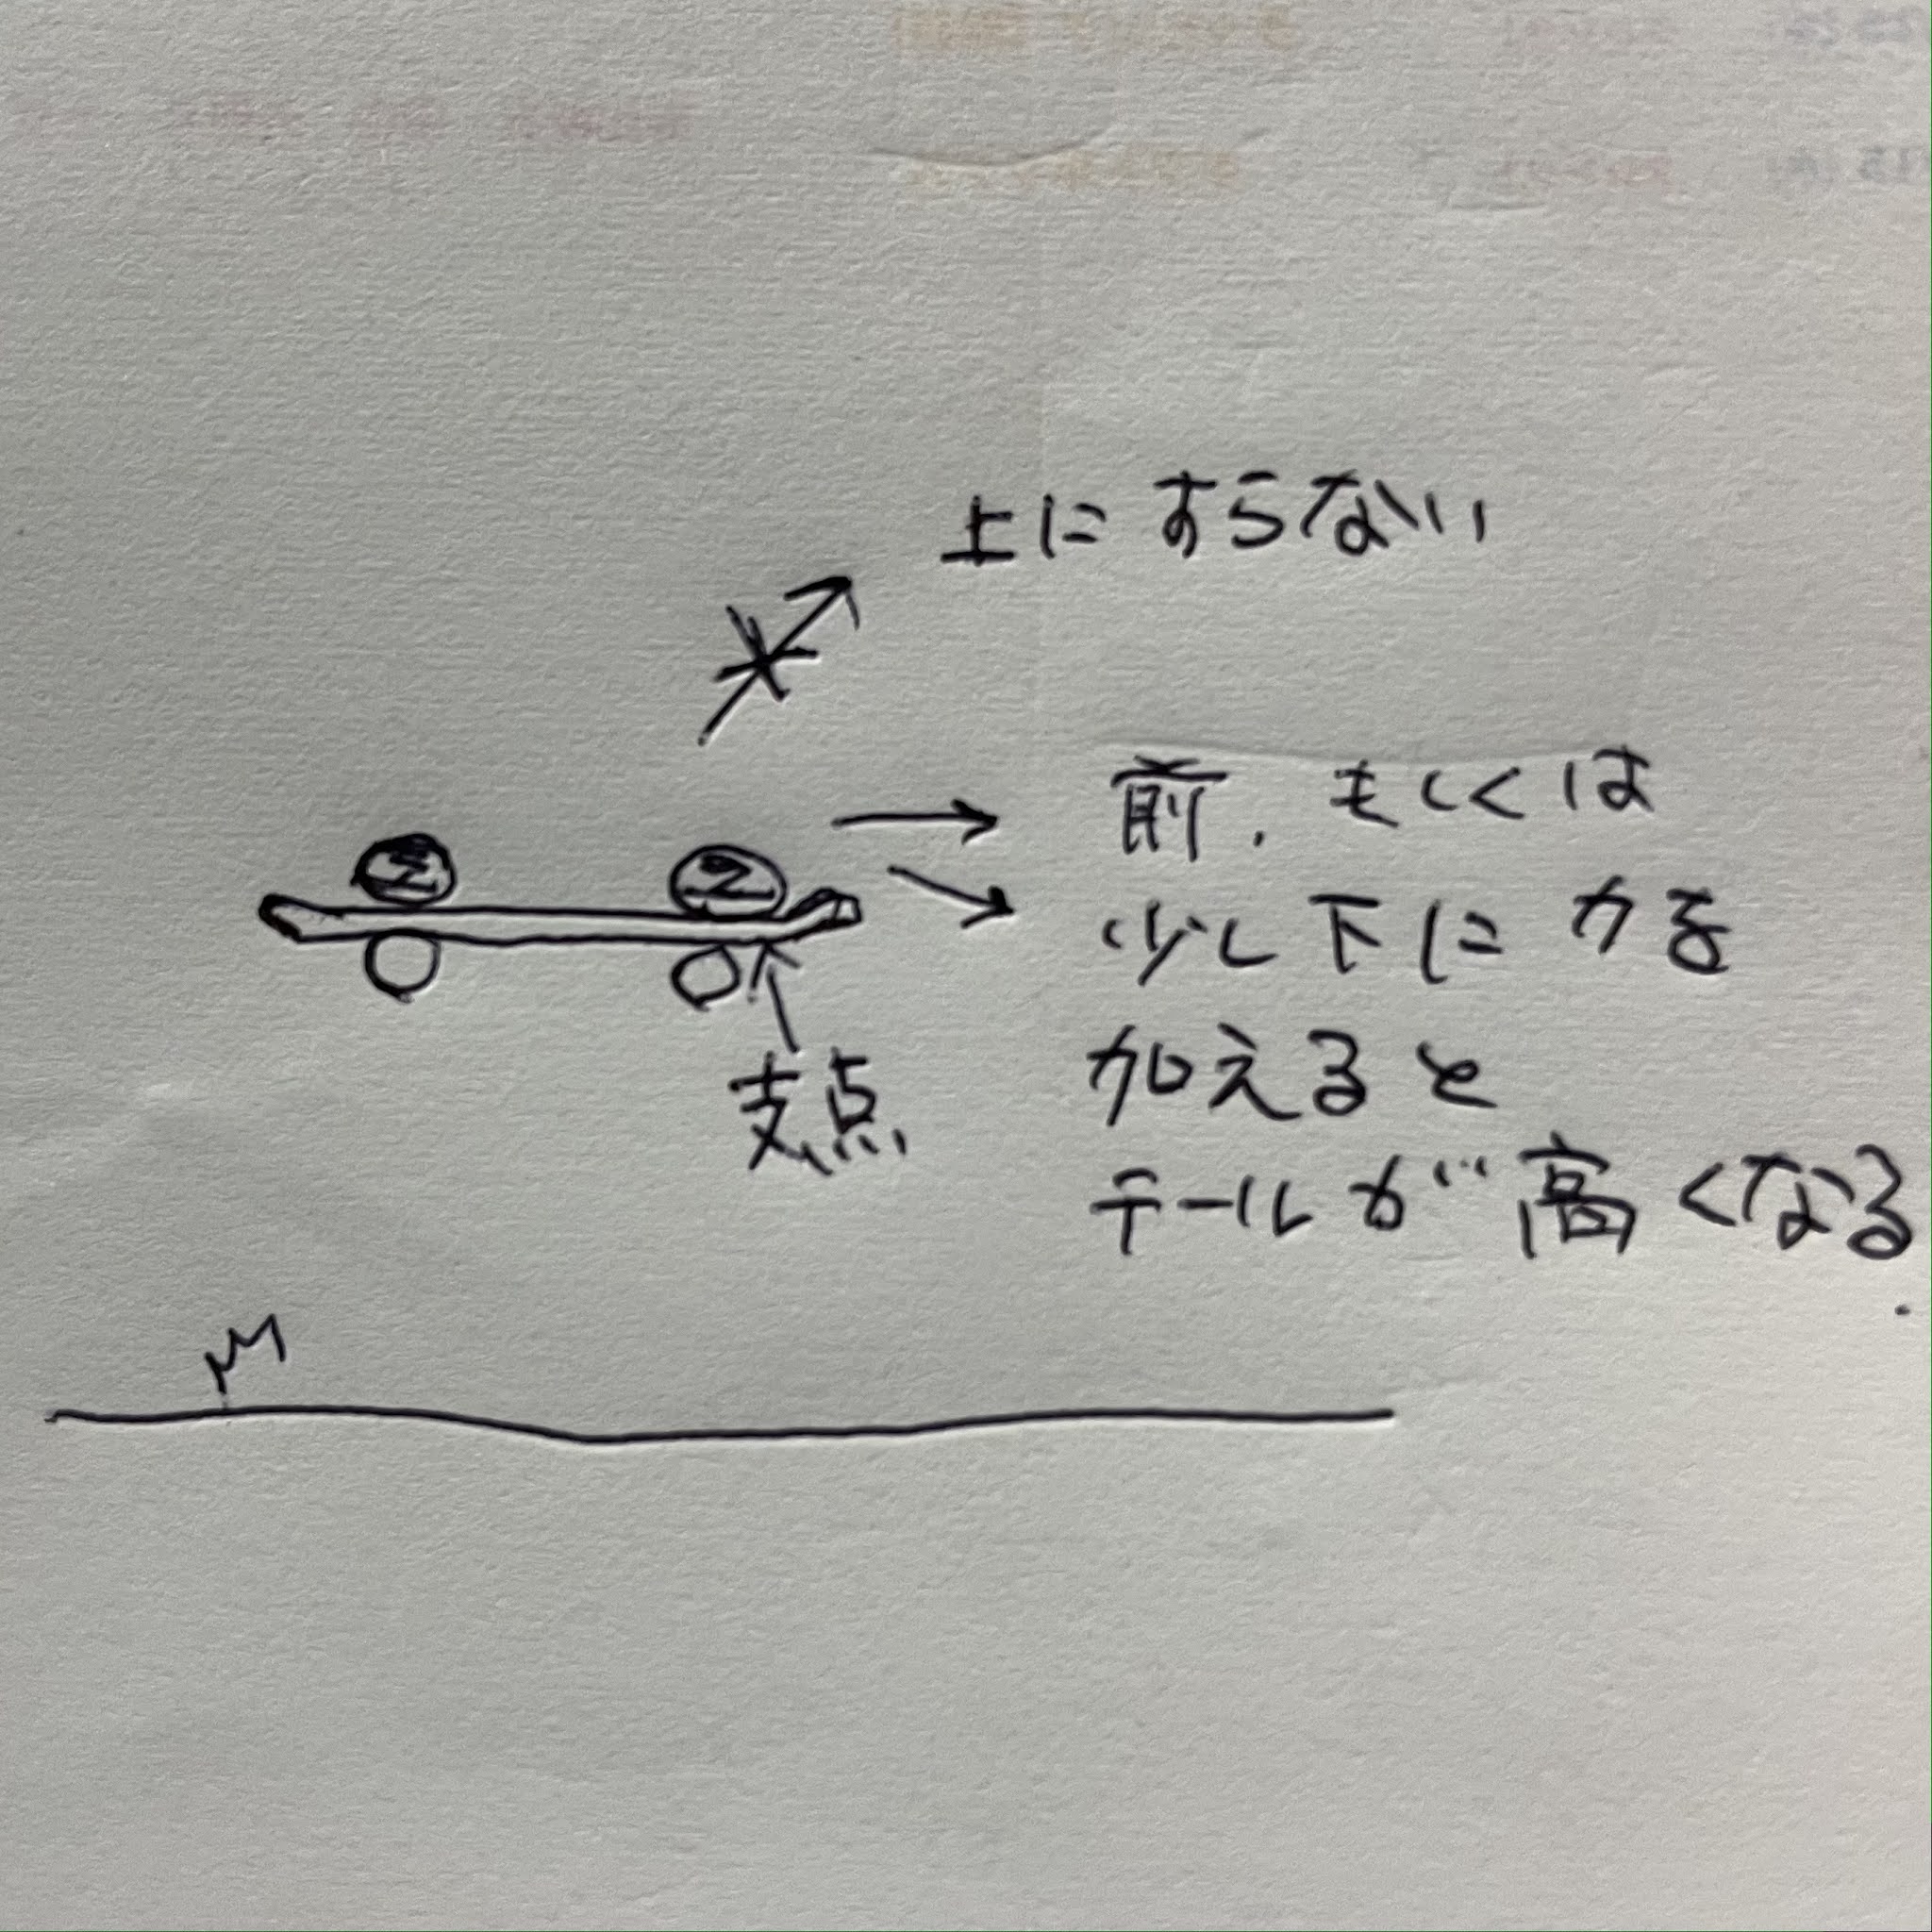 上にすらない
前、もしくは
少し下に力を
加えると
テールが高くなる.
支点